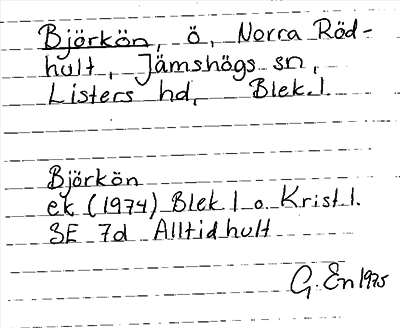 Björkön, ö, Norra Röd-
hult, Jämshögs sn,
Listers hd, Blek. l.
Björkön
ek (1974) Blek l o. Krist l.
3E 7d Alltidhult
G. En 1975